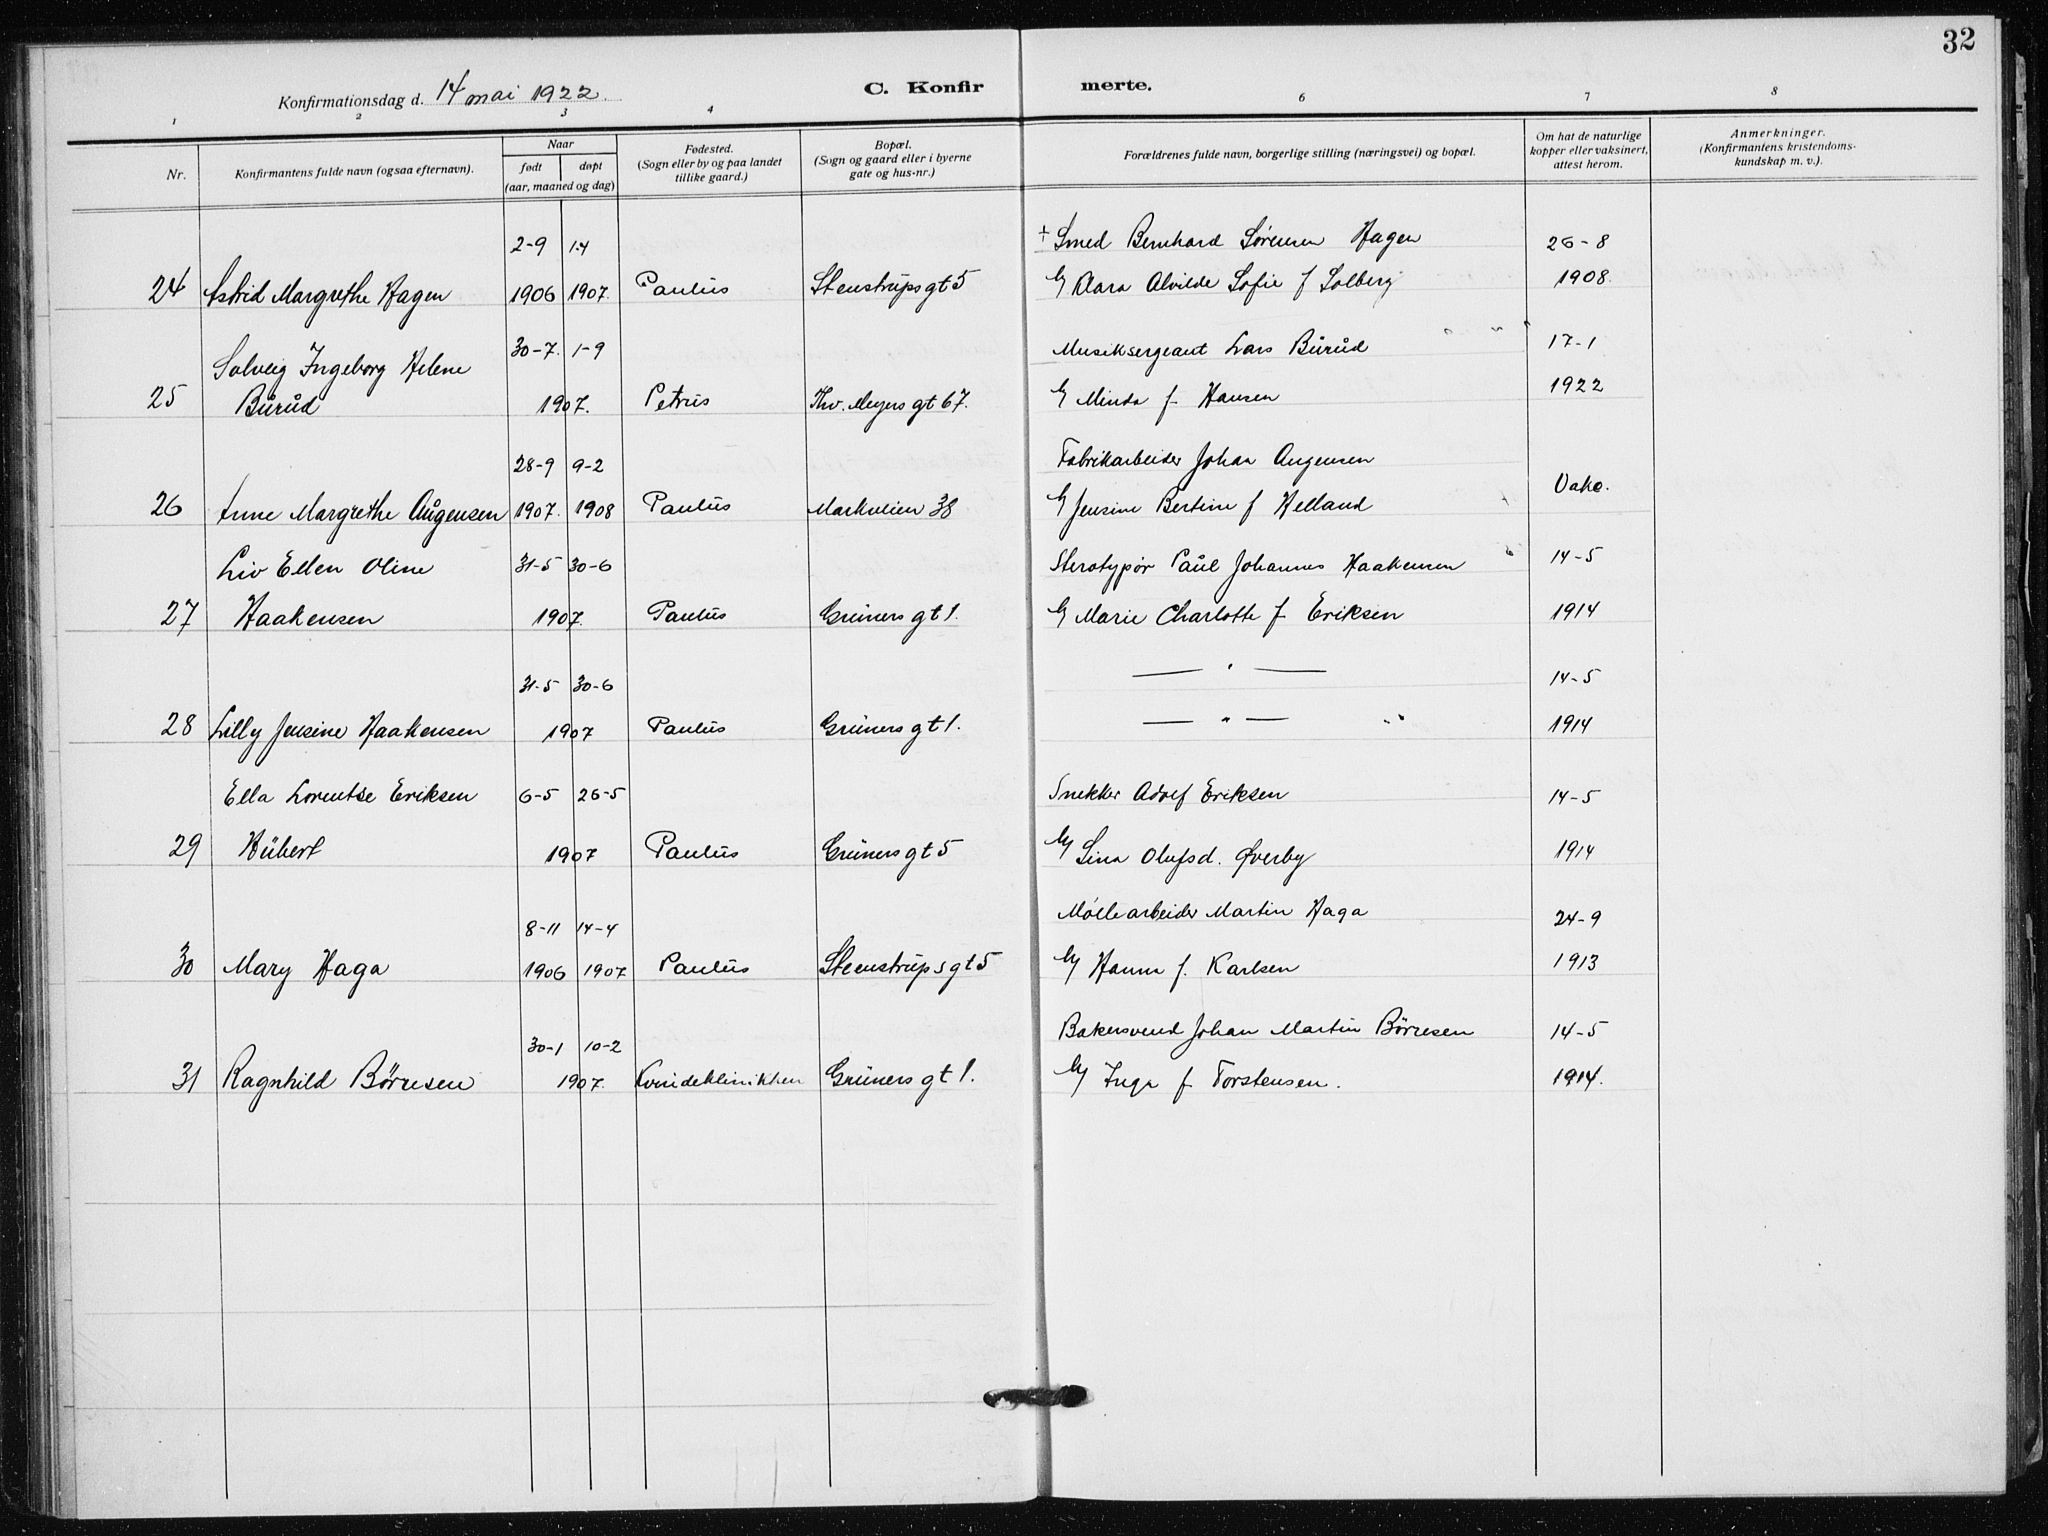 32
Konfirmationsdag d. 14 mai 1922.
C. Konfir merte.
1 2 3 4 6 7 8
Nr.
Konfirmantens fulde navn (ogsaa efternavn).
Naar
født døpt
(aar, maaned og dag)
Fødested.
(Sogn eller by og paa landet
tillike gaard.)
Bopæl.
(Sogn og gaard eller i byerne
gate og hus-nr.)
Forældrenes fulde navn, borgerlige stilling (næringsvei) og bopæl.
Om hat de naturlige
kopper eller vaksinert,
attest herom.
Anmerkninger.
(Konfirmantens kristendoms-
kundskap m. v.).
2-9 1-4 + Smed Bernhard Sørensen Hagen 26-8
24 Astrid Margrethe Hagen 1906 1907. Paulus Stenstrups gt 5 Clara Alvilde Sofie f Solberg 1908.
Solveig Ingeborg Helene 30-7. 1-9 Musiksergeant Lars Burud 17-1
25 Burud 1907. Petrus Thv. Meyers gt 67. Minda f. Hansen 1922
28-9 9-2 Fabrikarbeider Johan Augensen
26 Anne Margrethe Augensen 1907. 1908 Paulus Markveien 38 Jensine Bertine f Helland Vako.
Liv Ellen Oline 31-5 30-6 Sterotypør Paul Johannes Haakensen 14-5
27 Haakensen 1907. Paulus Grüners gt 1. Marie Charlotte f Eriksen 1914
31-5 30-6 — " — 14-5
28 Lilly Jensine Haakensen 1907 Paulus Grüners gt 1. — " — " 1914
Ella Lorentse Eriksen 6-5 26-5 Snekker Adolf Eriksen 14-5
29 Hübert 1907 Paulus Grüners gt 5 Lina Olufsd. Øverby 1914
8-11 14-4 Møllearbeider Martin Haga 24-9
30 Mary Haga 1906 1907 Paulus Steenstrups gt 5 Hanna f. Karlsen 1913
30-1 10-2 Bakersvend Johan Martin Børresen 14-5
31 Ragnhild Børresen 1907. Kvindeklinikken Grüners gt 1. Inga f Torstensen. 1914.